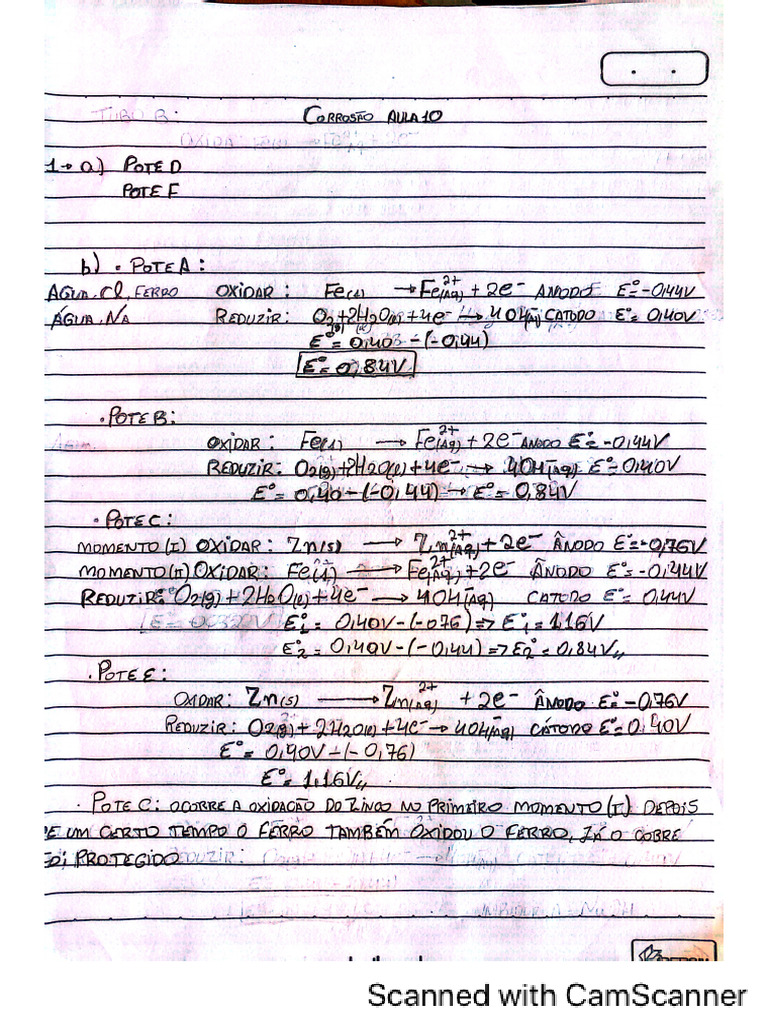 CORROSÃO AULA 10
TUBO B:
1→ a) POTE D
POTE F
b) • POTE A:
ÁGUA, Cl, FERRO OXIDAR: Fe(s) → Fe(Aq)²⁺ + 2e⁻ ANODO E°=-0,44V
ÁGUA, Na REDUZIR: O₂ + 2H₂O(l) + 4e⁻ → 4OH⁻(Aq) CATODO E°= 0,40V
(g) (l)
E°= 0,40 - (-0,44)
E°= 0,84V
• POTE B:
OXIDAR: Fe(s) → Fe(Aq)²⁺ + 2e⁻ ANODO E°=-0,44V
REDUZIR: O₂(g) + 2H₂O(l) + 4e⁻ → 4OH⁻(Aq) E°=0,40V
E°= 0,40 - (-0,44) → E°= 0,84V
• POTE C:
MOMENTO (I) OXIDAR: Zn(s) → Zn(Aq)²⁺ + 2e⁻ ÂNODO E°=-0,76V
MOMENTO (II) OXIDAR: Fe(s) → Fe(Aq)²⁺ + 2e⁻ ÂNODO E°= -0,44V
REDUZIR: O₂(g) + 2H₂O(l) + 4e⁻ → 4OH⁻(Aq) CATODO E°= 0,44V
E°₁ = 0,40V - (-076) => E°₁ = 1,16V
E°₂ = 0,40V - (-0,44) => E°₂ = 0,84V,,
• POTE E:
OXIDAR: Zn(s) → Zn(Aq)²⁺ + 2e⁻ ÂNODO E°= -0,76V
REDUZIR: O₂(g) + 2H₂O(l) + 4e⁻ → 4OH(Aq)⁻ CÁTODO E°= 0,40V
E°= 0,40V - (-0,76)
E°= 1,16V,,
• POTE C: OCORRE A OXIDAÇÃO DO ZINCO NO PRIMEIRO MOMENTO (I) DEPOIS
E UM CERTO TEMPO O FERRO TAMBÉM OXIDOU O FERRO, JÁ O COBRE
FOI PROTEGIDO
Scanned with CamScanner